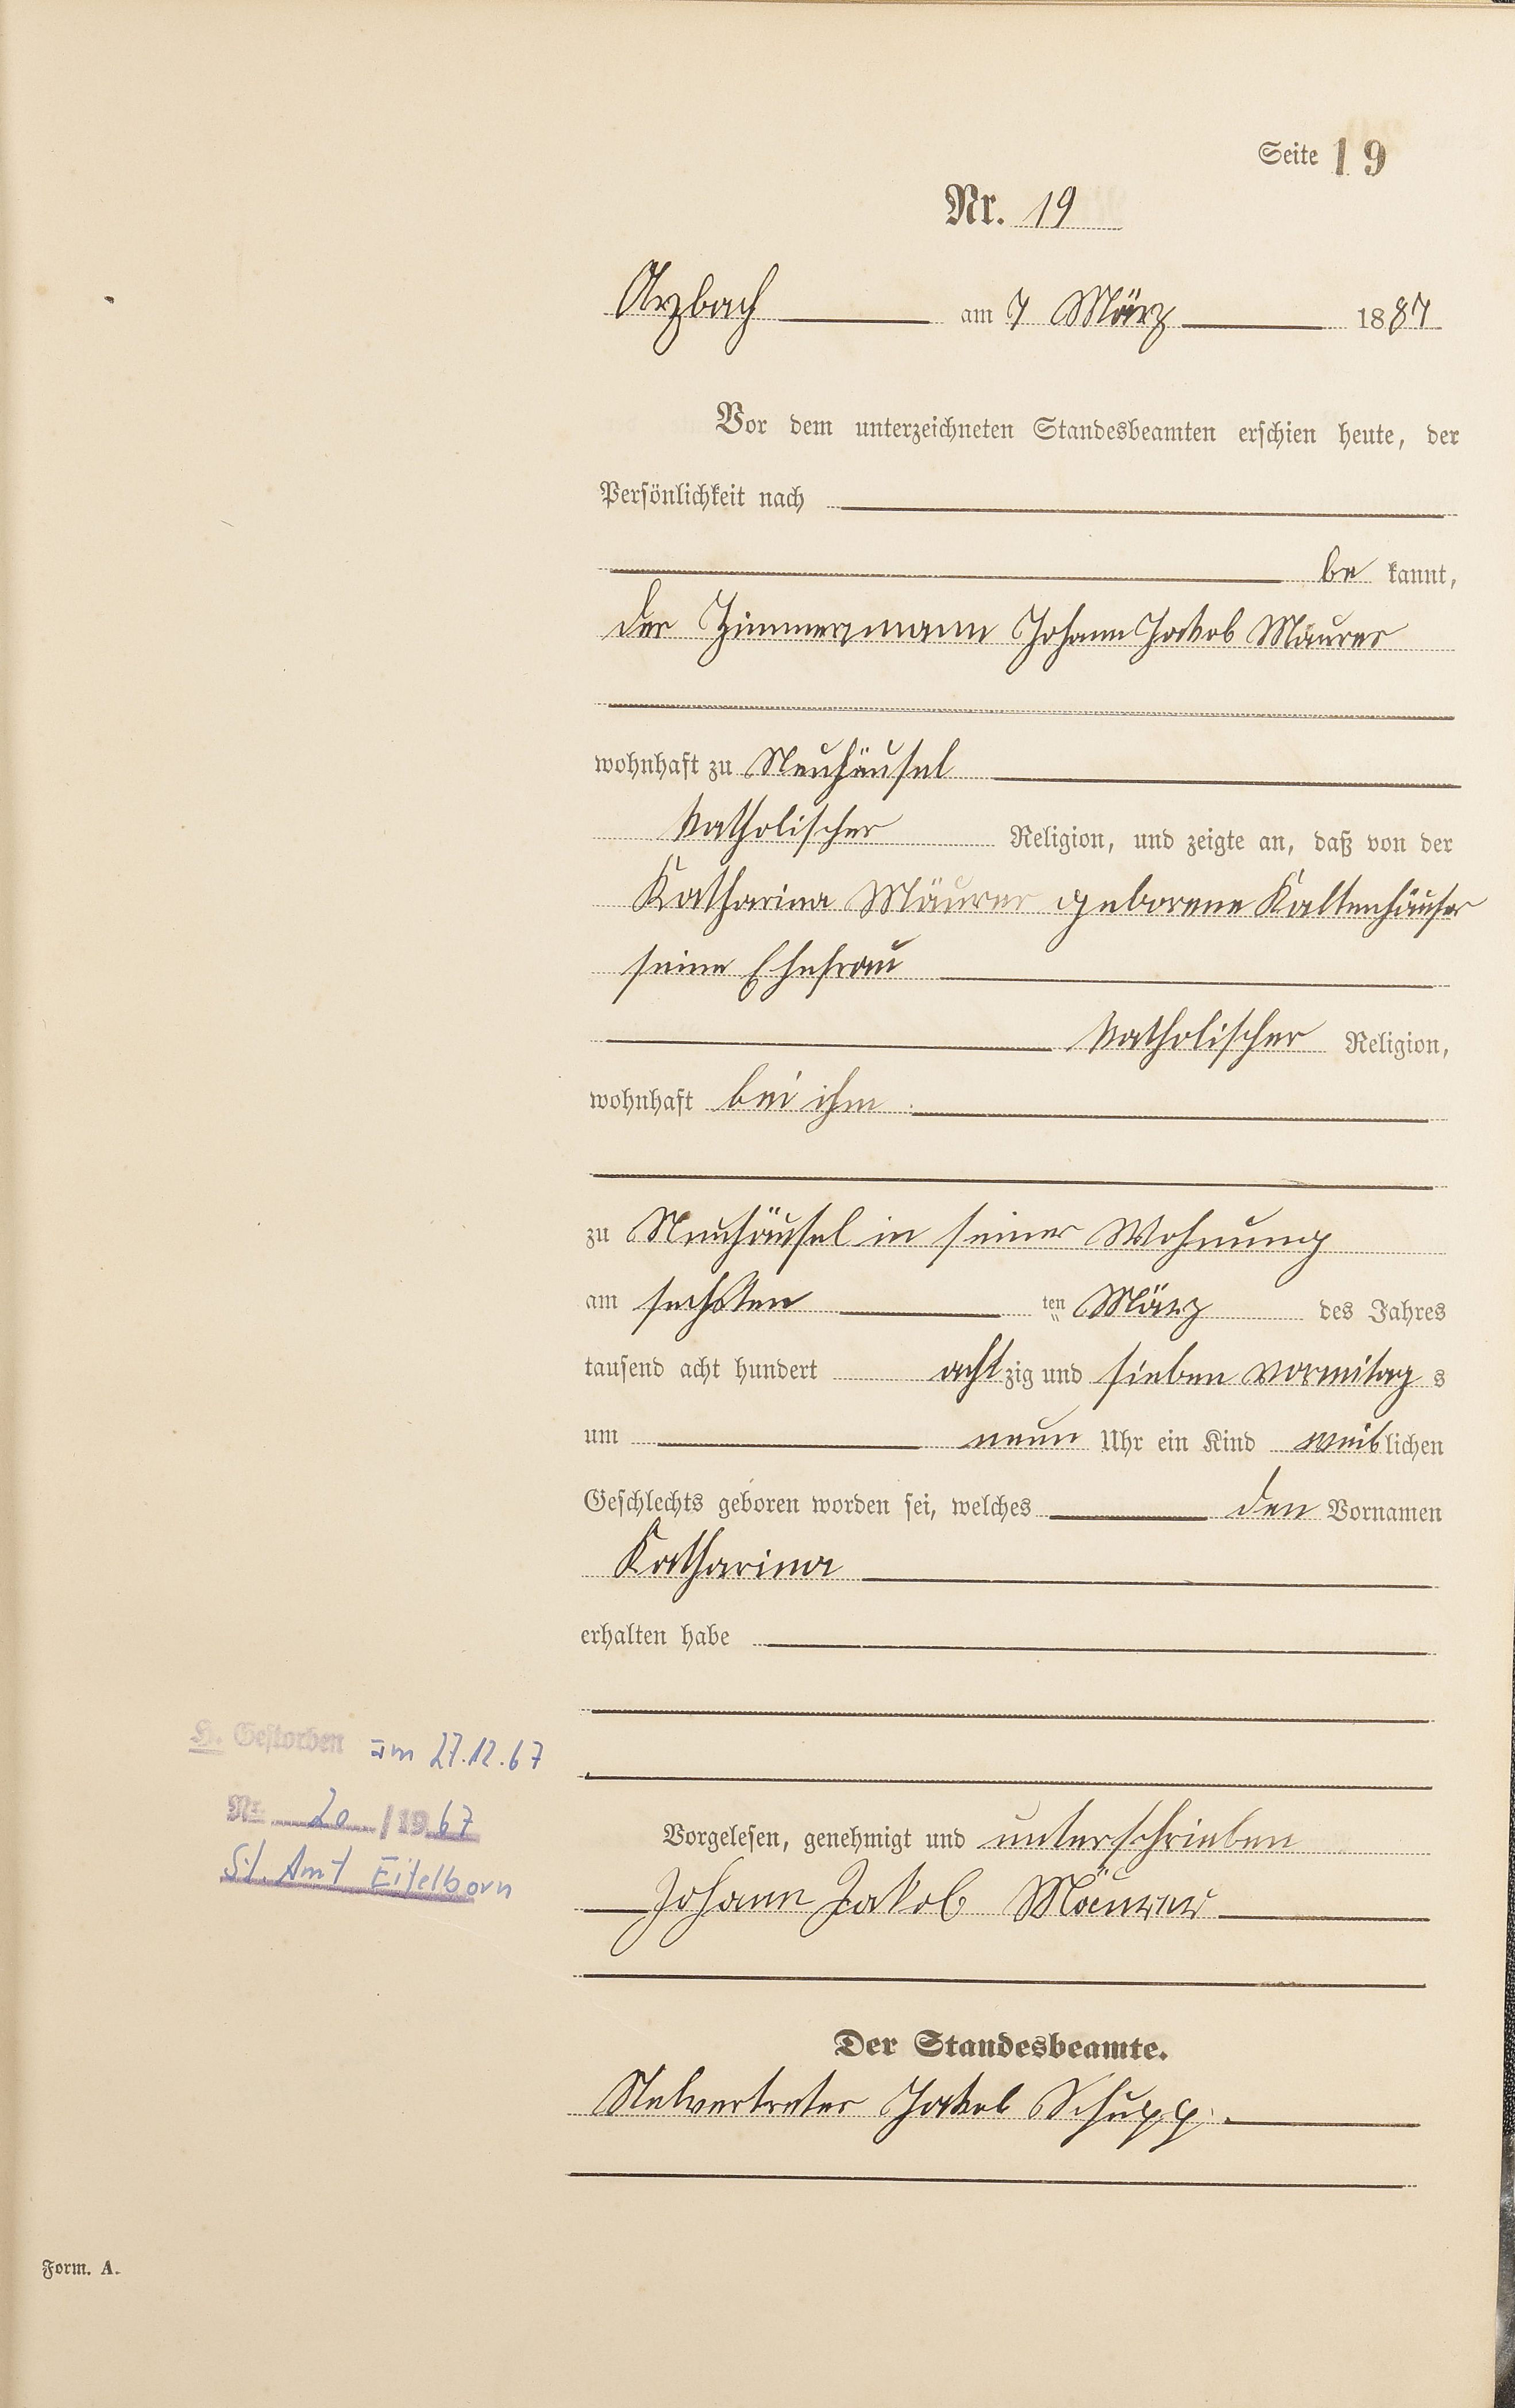 Seite 19
Nr. 19
Arzbach am 7 März 1887
Vor dem unterzeichneten Standesbeamten erschien heute, der
Persönlichkeit nach
be kannt,
der Zimmermann Johann Jakob Mäurer
wohnhaft zu Neuhäusel
katholischer Religion, und zeigte an, daß von der
Katharina Mäurer geborene Kaltenhäuser
seine Ehefrau
katholischer Religion,
wohnhaft bei ihm
zu Neuhäusel in seiner Wohnung
am sechsten ten März des Jahres
tausend acht hundert achtzig und sieben vormitag s
um neun Uhr ein Kind weiblichen
Geschlechts geboren worden sei, welches den Vornamen
Katharina
erhalten habe
H. Gestorben am 27.12.67
Nr. 20/1967
St. Amt Eitelborn
Vorgelesen, genehmigt und unterschrieben
Johann Jakob Mäurer
Der Standesbeamte.
Stelvertreter Jakob Schupp.
Form. A.